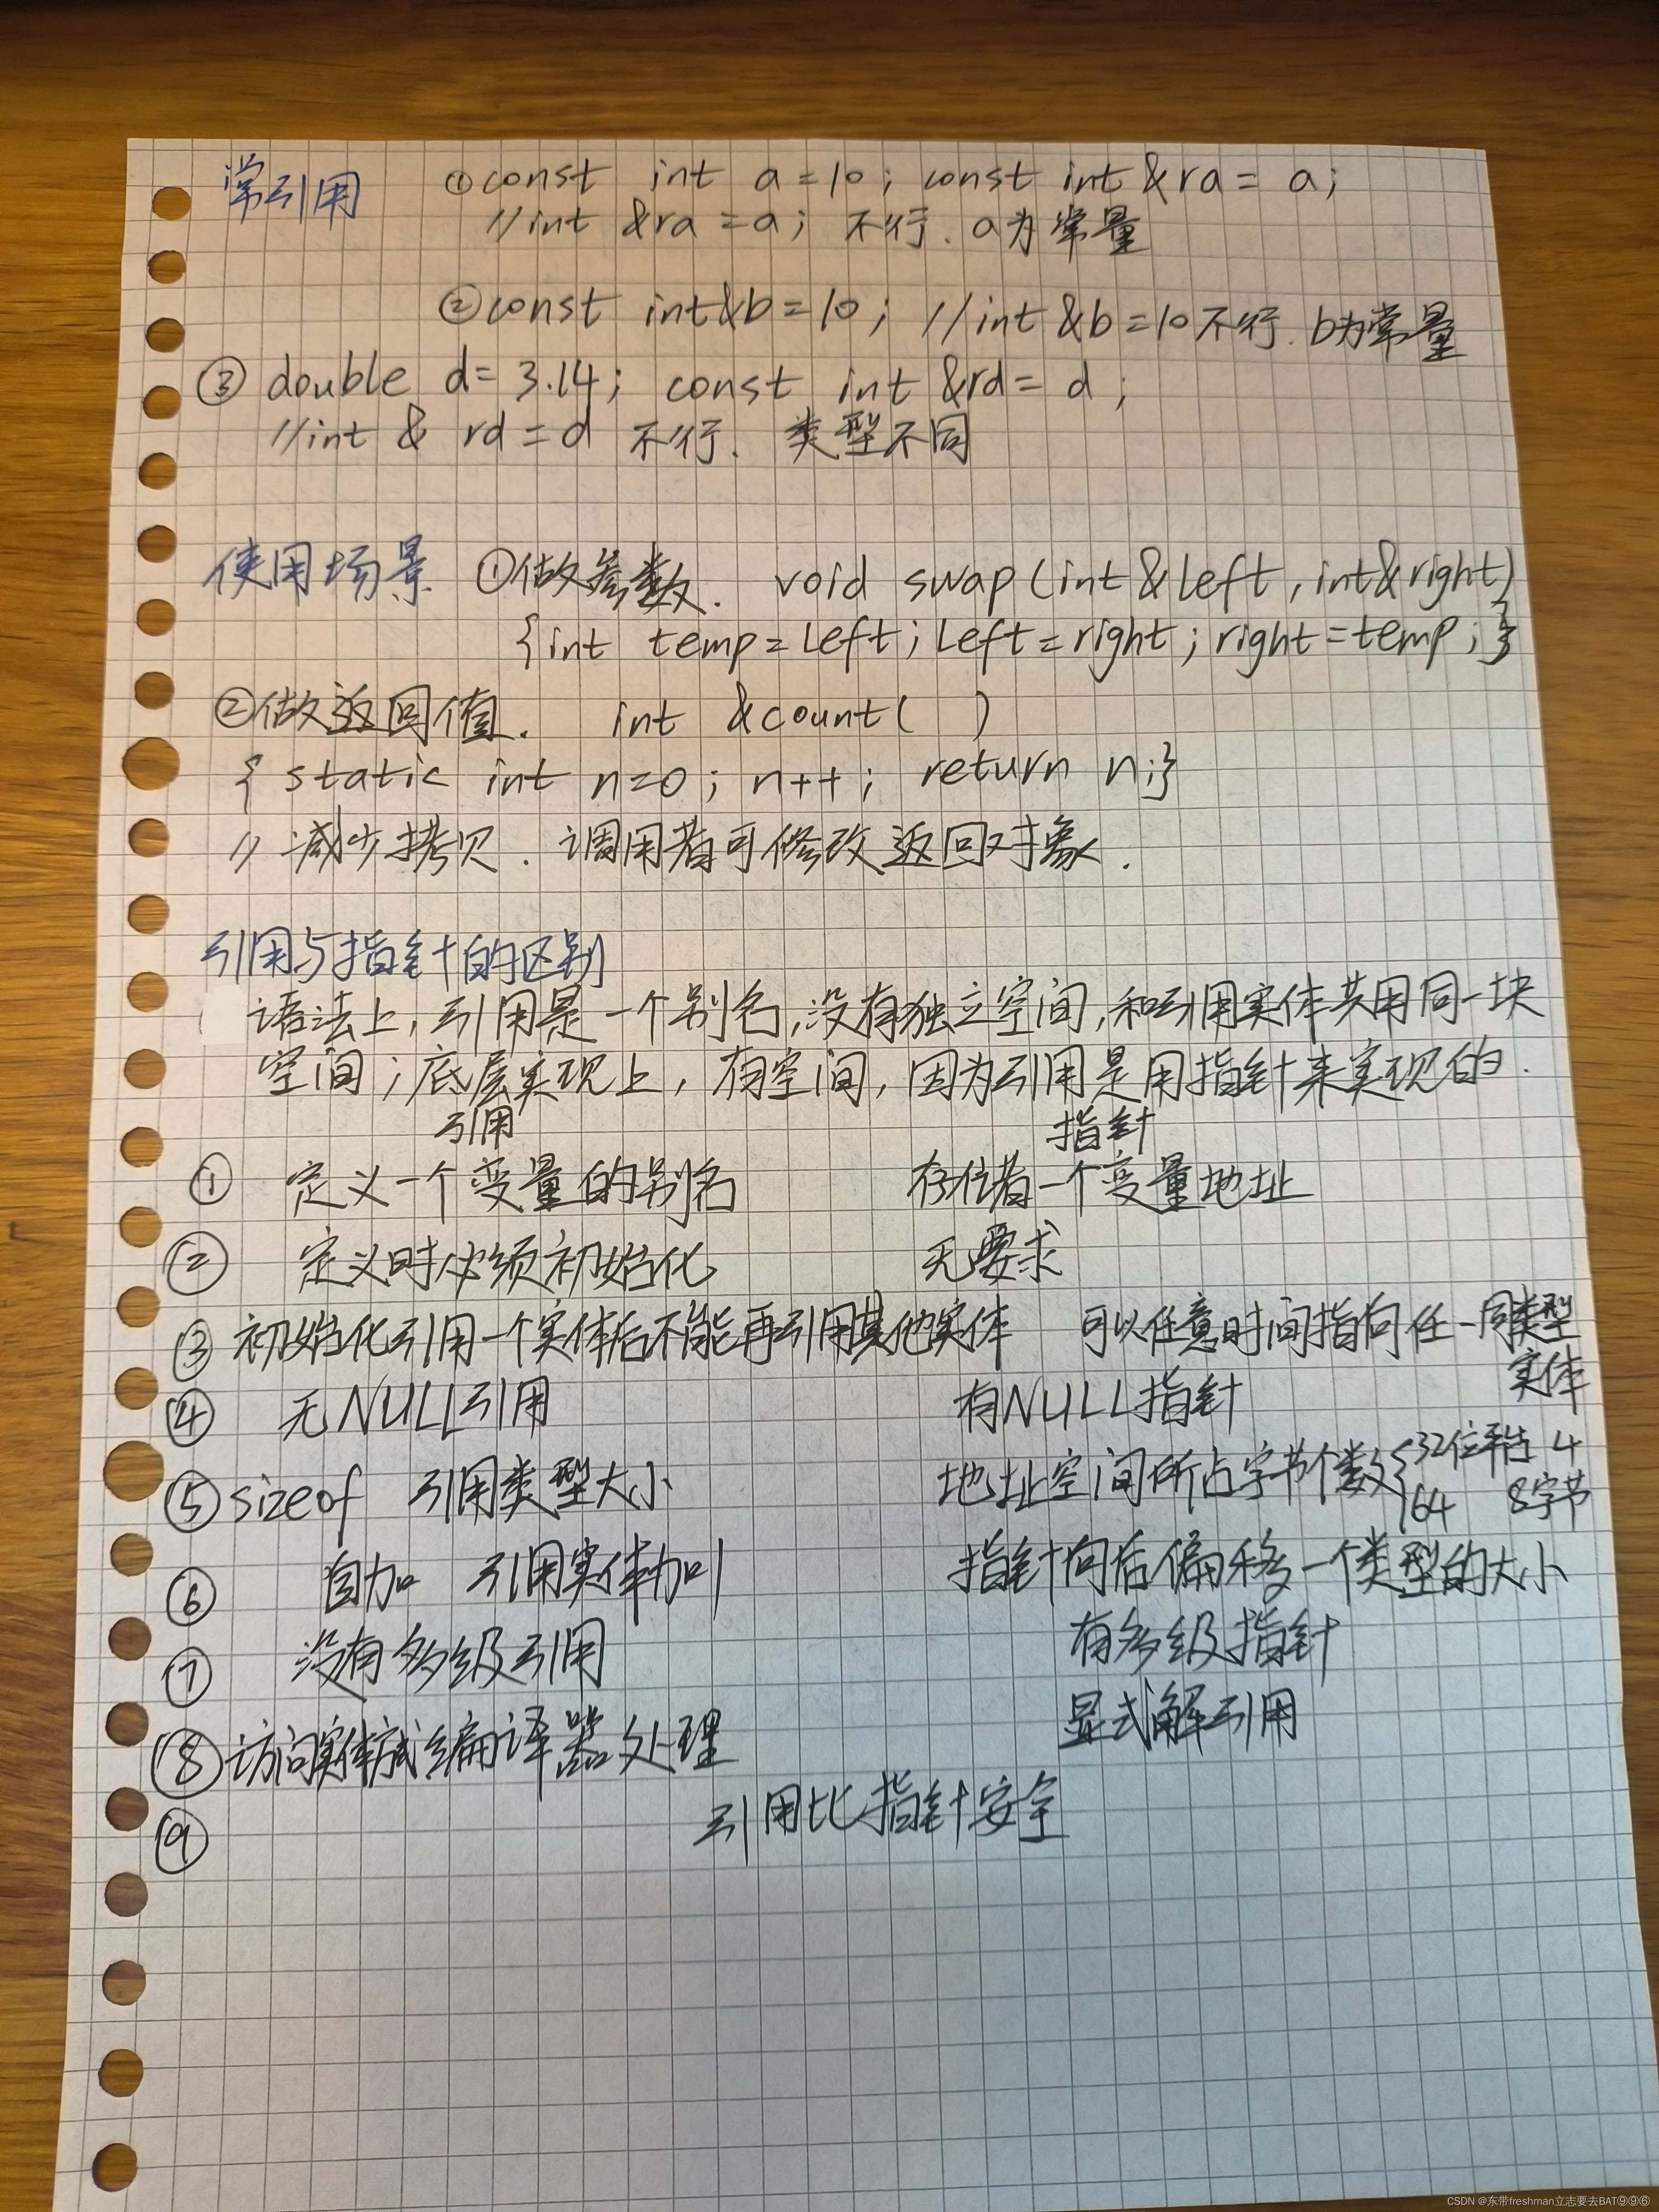 常引用 ①const int a=10; const int &ra= a;
//int &ra=a; 不行. a为常量
②const int&b=10; //int &b=10不行. b为常量
③ double d=3.14; const int &rd= d;
//int & rd=d 不行. 类型不同
使用场景 ①做参数. void swap(int&left,int&right)
{int temp=left;left=right;right=temp;}
②做返回值. int &count( )
{ static int n=0; n++; return n;}
// 减少拷贝. 调用者可修改返回对象.
引用与指针的区别
语法上,引用是一个别名,没有独立空间,和引用实体共用同一块
空间;底层实现上,有空间,因为引用是用指针来实现的.
引用 指针
① 定义一个变量的别名 存储着一个变量地址
② 定义时必须初始化 无要求
③ 初始化引用一个实体后不能再引用其他实体 可以任意时间指向任一同类型
实体
④ 无NULL引用 有NULL指针
⑤ sizeof 引用类型大小 地址空间所占字节个数{32位平台 4
64 8字节
⑥ 自加 引用实体加1 指针向后偏移一个类型的大小
⑦ 没有多级引用 有多级指针
⑧ 访问实体方式编译器处理 显式解引用
⑨ 引用比指针安全
CSDN @东带freshman立志要去BAT⑨⑨⑥